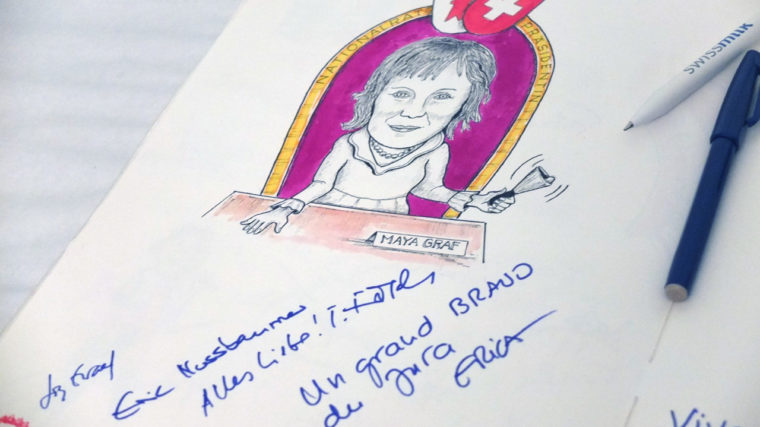 NATIONALRATSPRÄSIDENTIN
swissmilk
MAYA GRAF
Eric Nussbaumer
Alles Liebe!
Un grand BRAVO
du Jura
ERICA
Viv